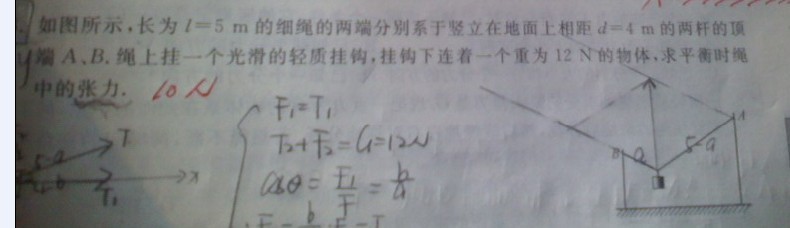 如图所示,长为 l=5 m 的细绳的两端分别系于竖立在地面上相距 d=4 m 的两杆的顶
端 A、B. 绳上挂一个光滑的轻质挂钩,挂钩下连着一个重为 12 N 的物体,求平衡时绳
中的张力. 10 N
F₁=T₁
T₂+F₂=G=12N
cosθ=F₁/F=b/a
T
5-a
4-b
T₁
x
B
a
5-a
A